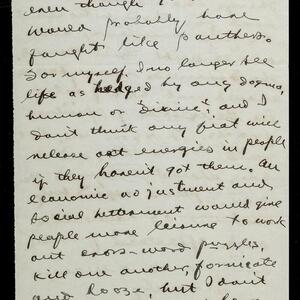 even though
would probably have
fought like panthers.
For myself, I no longer see
life as hedged by any dogma,
human or "divine"; and I
don't think any fiat will
release energies in people
if they haven't got them. An
economic adjustment and
social betterment would give
people more leisure to work
out cross-word puzzles,
kill one another, fornicate
and booze, but I don't